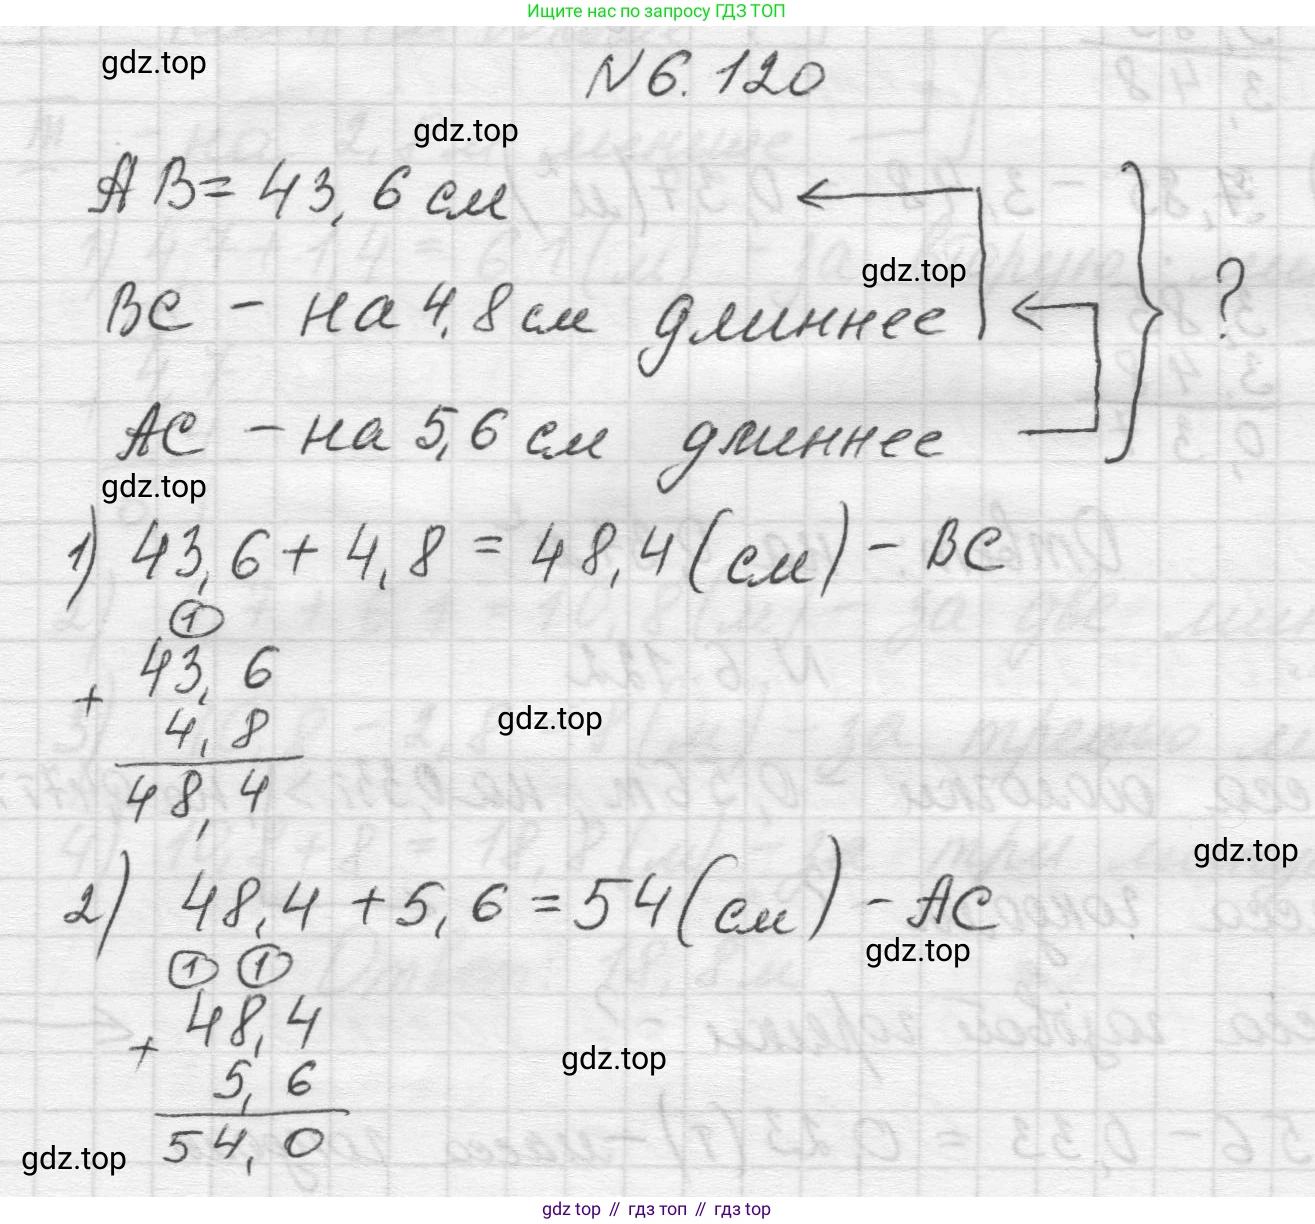 Ищите нас по запросу ГДЗ ТОП
gdz.top
N 6. 120
gdz.top
AB = 43,6 см
gdz.top
BC - на 4,8 см длиннее
?
AC - на 5,6 см длиннее
gdz.top
1) 43,6 + 4,8 = 48,4 (см) - BC
1
43,6
+
4,8
gdz.top
48,4
gdz.top
2) 48,4 + 5,6 = 54 (см) - AC
gdz.top
1 1
48,4
+
5,6
gdz.top
54,0
gdz.top
gdz top // гдз топ // gdz top